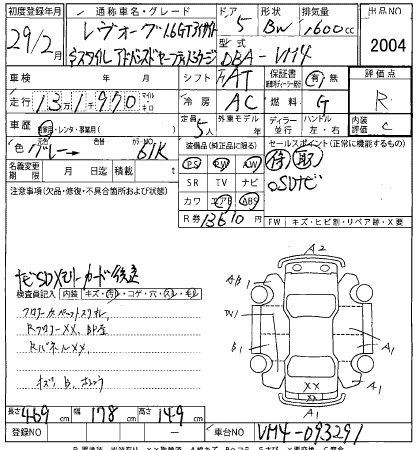 初度登録年月 通称車名・グレード ドア 形状 排気量 出品NO
29/2月 レヴォーグ 1.6GTアイサイト 5 BW 1600cc 2004
Sスタイル アドバンスドセーフティパッケージ 型式 DBA-VM4
車検 年 月 シフト FAT 保証書 有 無 評価点
走行 13万1970 マイル Km 冷房 AC 燃料 G R
車歴 自家用・レンタ・事業用 定員 5人 外車モデル 年 ディーラー 並行 ハンドル 左・右 内装評価 C
色 グレー → 色替 カラーNO 61K 装備品(純正に限る) セールスポイント(正常に機能するもの)
名義変更期限 月 日 積載 t PS PW AW 待 取
注意事項(欠品・修復・不具合箇所および状態) SR TV ナビ SDナビ
カワ エアB ABS
R券 13610円 FW キズ・ヒビ割・リペア跡・X要
ナビSDメモリーカード欠品
検査員記入 内装 キズ・汚・コゲ・穴・ス・毛
フロアーカーペットスリ
RフロアーXX、
RパネルXX、
A2
AB1 A1
W1
B1
A1
XX
XX
A1
長さ 469cm 幅 178cm 高さ 149cm
登録NO — 車台NO VM4-093291